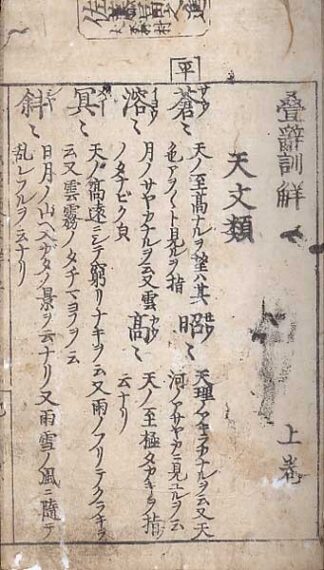 平
疊辭訓解 上巻
天文類
蒼〻 天ノ至髙ナルヲ望ハ其色アヲ〱ト見ルヲ指
昭〻 天理ノアキラカナルヲ云又天河ノアサヤカニ見ユルヲ云
溶〻 月ノサヤカナルヲ云又雲ノタナビク皃
髙〻 天ノ至極タカキヲ指云ナリ
冥〻 天ノ髙遠ニシテ窮リナキヲ云又雨ノフリテクラキヲ云又雲霧ノタチマヨフヲ云
斜〻 日月ノ山ヘ入ガタノ景ヲ云ナリ又雨雪ノ風ニ隨テ乱レフルヲ云ナリ